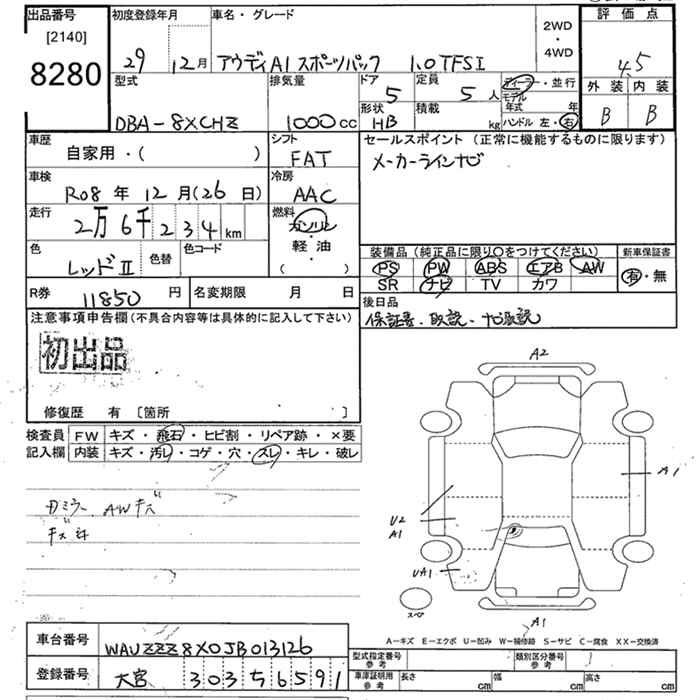 出品番号
[2140]
8280
初度登録年月
29 12月
車名・グレード
アウディA1 スポーツバック 1.0TFSI
2WD
・
4WD
評価点
4.5
外装 内装
B B
型式
DBA-8XCHZ
排気量
1000cc
ドア
5
形状
HB
定員
5人
積載
kg
ディーラー・並行
モデル
年式 年
ハンドル 左・右
車歴
自家用・( )
シフト
FAT
セールスポイント(正常に機能するものに限ります)
メーカーラインナビ
車検
R08年 12月(26日)
冷房
AAC
走行
2万6千234km
燃料
ガソリン
・
軽油
( )
色
レッドⅡ
色替
色コード
装備品(純正品に限り〇をつけてください)
PS PW ABS エアB AW
SR ナビ TV カワ
新車保証書
有・無
R券
11850円
名変期限 月 日
後日品
保証書、取説、ナビ取説
注意事項申告欄(不具合内容等は具体的に記入して下さい)
初出品
修復歴 有 [箇所 ]
検査員
記入欄
FW キズ・飛石・ヒビ割・リペア跡・×要
内装 キズ・汚レ・コゲ・穴・スレ・キレ・破レ
カミラー、AWキズ
A2
A1
U2
A1
UA1
スペア
A1
A-キズ E-エクボ U-凹み W-補修跡 S-サビ C-腐食 XX-交換済
車台番号
WAUZZZ8X0JB013126
登録番号
大宮 303 5 6591
型式指定番号
参考
類別区分番号
参考
車庫証明用
参考
長さ cm
幅 cm
高さ cm